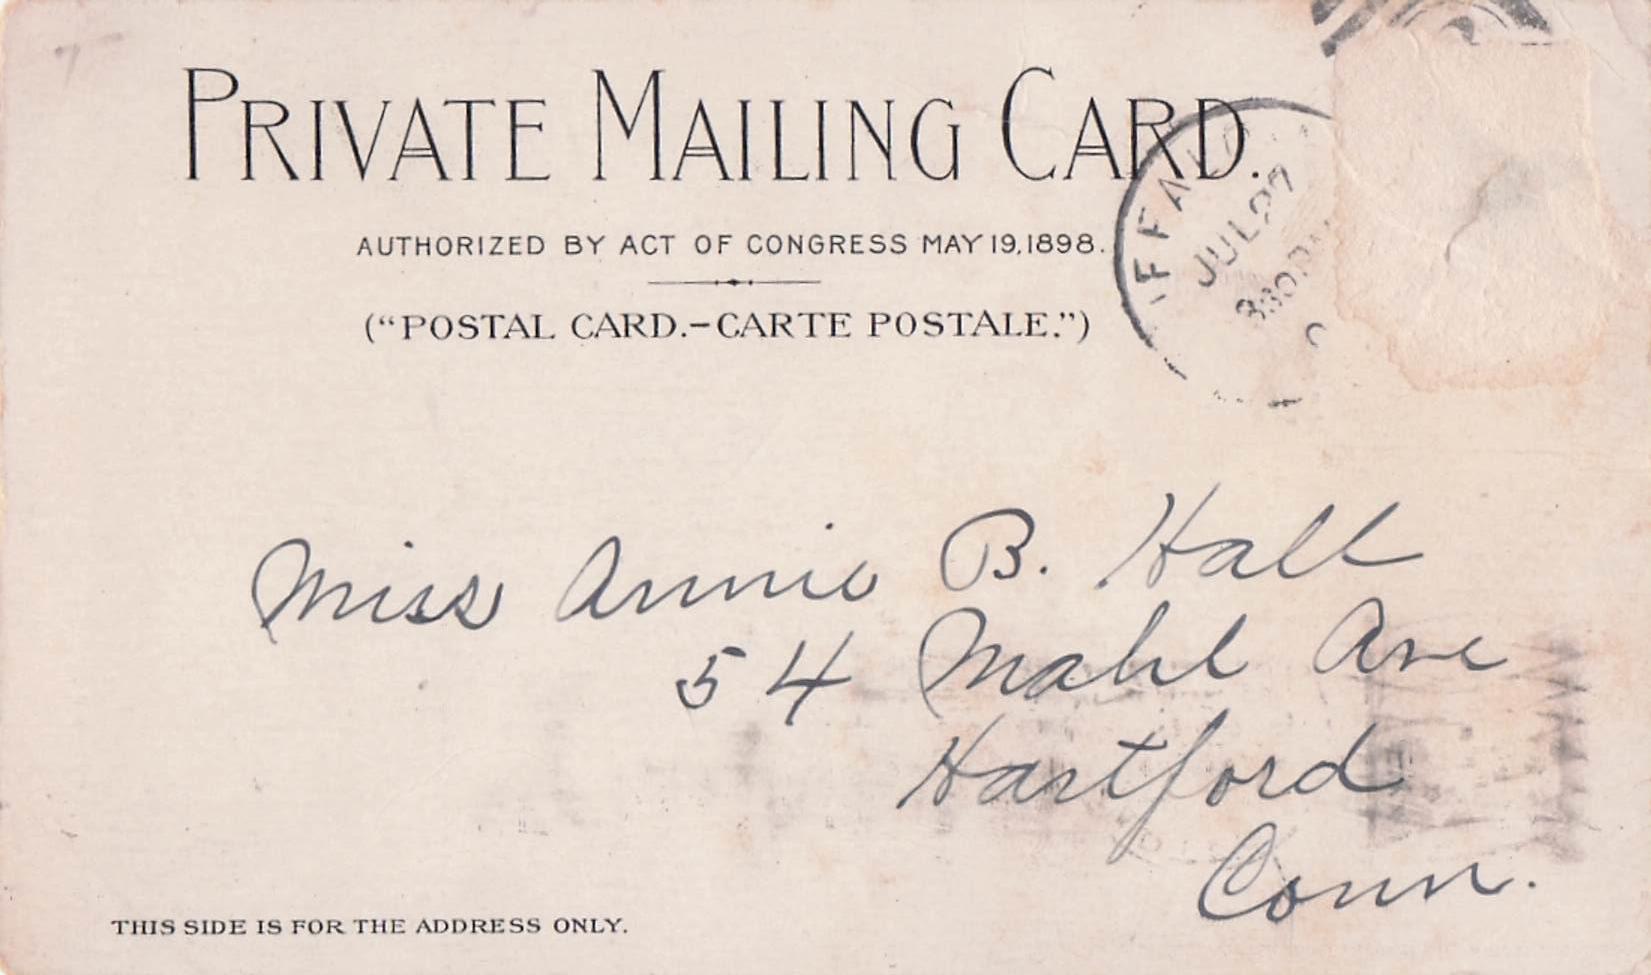 PRIVATE MAILING CARD.
AUTHORIZED BY ACT OF CONGRESS MAY 19, 1898.
("POSTAL CARD.-CARTE POSTALE.")
FFALO
JUL 27
330PM
Miss Annie B. Hall
54 Mahl Ave
Hartford
Conn.
THIS SIDE IS FOR THE ADDRESS ONLY.